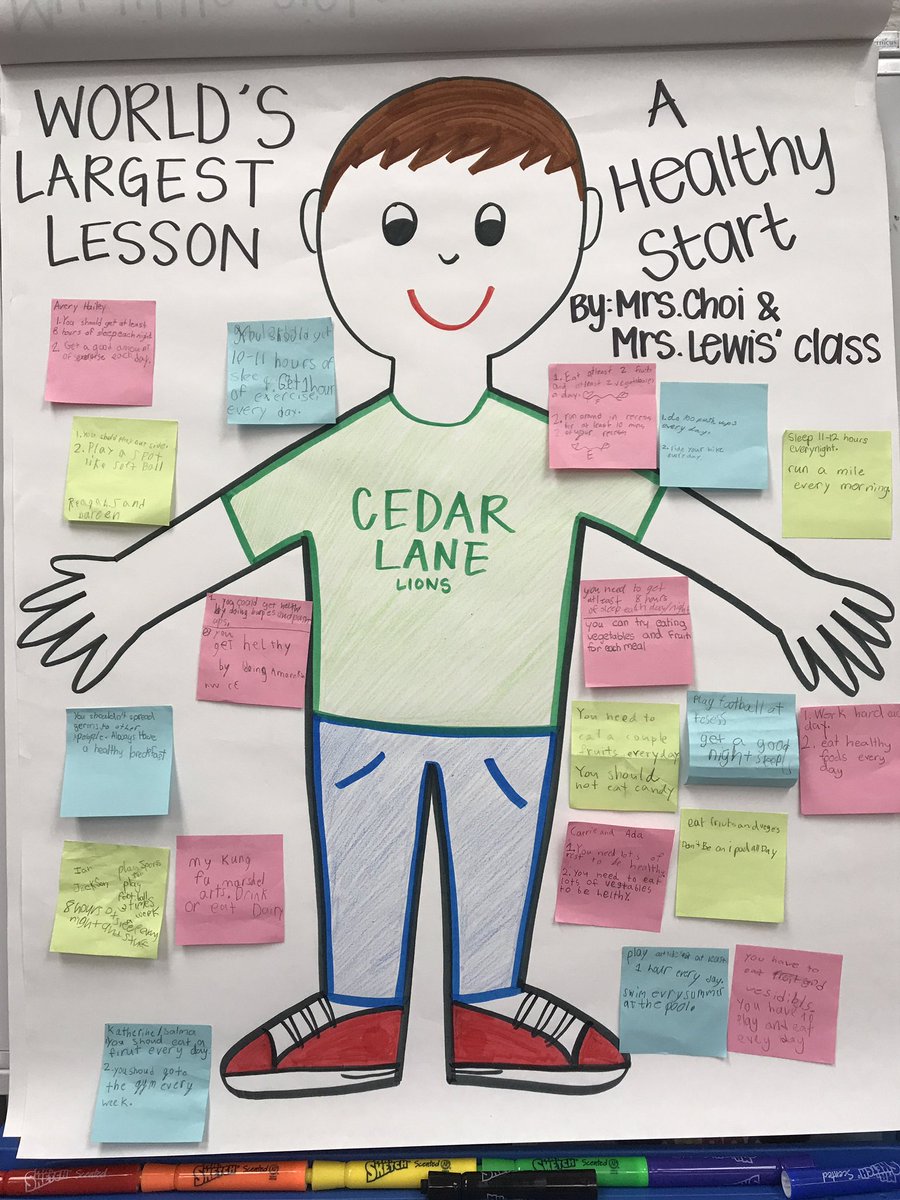 WORLD'S
LARGEST
LESSON
A
Healthy
Start
By: Mrs. Choi &
Mrs. Lewis' class
Avery Hailey
1. You should get at least
8 hours of sleep each night
2. Get a good amount
of exercise each day.
10-11 hours of
sleep. Get 1 hour
of exercise
every day.
1. Eat atleast 2 fruits
and atleast 2 vegetables
a day.
2. run around in recess
for at least 10 mins
of your recess
1. do 100 push ups
every day.
2. ride your bike
every day.
Sleep 11-12 hours
everynight.
run a mile
every morning.
2. Play a spot
like soft ball
CEDAR
LANE
LIONS
1. you could get helthy
by doing burpies and
ups.
2 you
get helthy
by doing
you need to get
atleast 8 hours
of sleep each day/night
you can try eating
vegetables and fruits
for each meal
You shouldn't spread
germs to other
people. Always have
a healthy breakfast
You need to
eat a couple
fruits everyday
You should
not eat candy
Play football at
get a good
night sleep
1. Work hard
day.
2. eat healthy
foods every
day
Carrie and Ada
1. You need lots of
rest to be healthy.
2. You need to eat
lots of vegtables
to be helthy.
eat friuts and veges
Don't Be on ipad all Day
Ian play sports
Jackson play
foot balls
week
8 hours of sleep every
my kung
fu marsdel
arts. Drink
or eat Dairy
play outside at least
1 hour every day.
swim evry summer
at the pool.
you have to
eat
vesidibls
You have to
Play and eat
evry day
Katherine/Salma
You shoud eat a
firut every day
2. you shoud go to
the gym every
week.
SKETCH Scented
SKETCH Scented
SKETCH Scented
SKETCH Scented